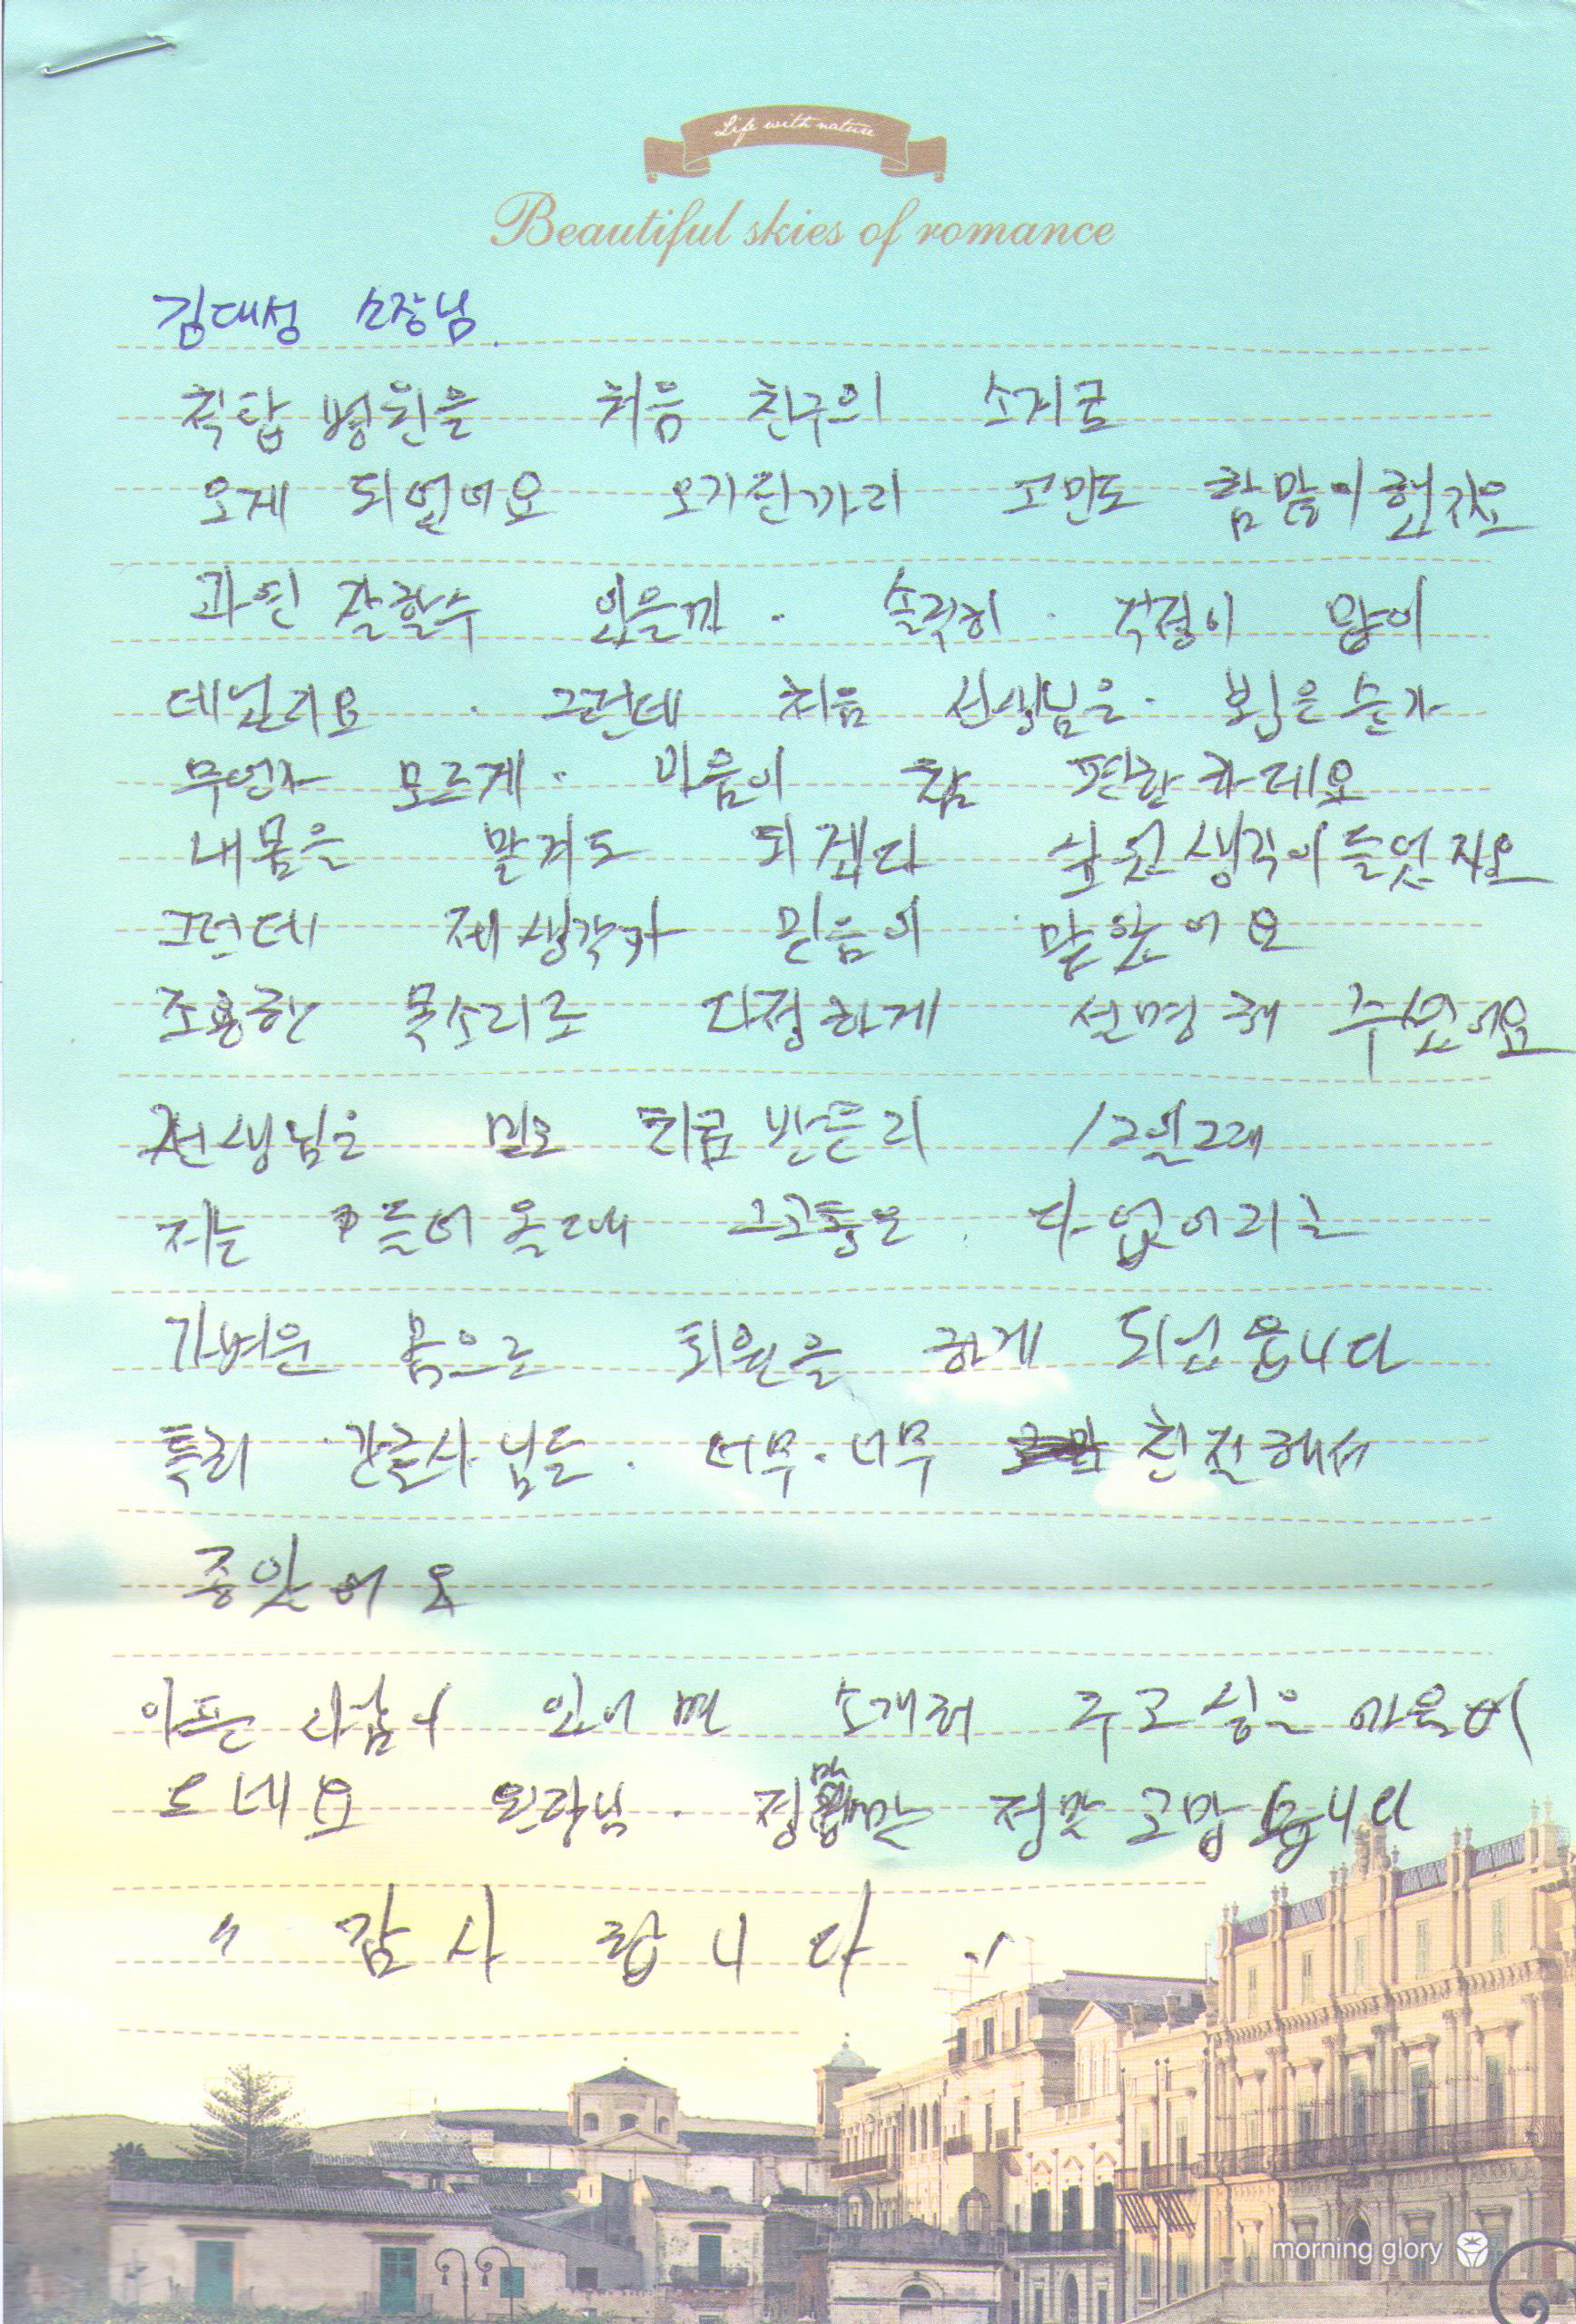 Life with nature
Beautiful skies of romance
김대성 소장님.
척탑 병원을 처음 친구의 소개로
오게 되었네요 오기전까지 고민도 참많이했지요
과연 잘할수 있을까. 솔직히 걱정이 많이
데넜지요. 그런데 처음 선생님을. 뵙은순가
무언자 모르게. 마음이 참 편한하데요
내몸을 맡겨도 되겠다 생각이들었지요
그런데 제생각가 믿음이 맞았어요
조용한 목소리로 다정하게 설명해 주었어요
선생님을 믿고
저는 들어올때 그고통은. 다없어지고
가벼운 몸으로 퇴원을 하게 되었읍니다
특히 간글사님들. 너무.너무 친절해서
종았어요
아픈 사람이 있어면 소개해 주고싶은 마음이
드네요 원장님. 정말 정말 고맙습니다
" 감사 합니다 "
morning glory